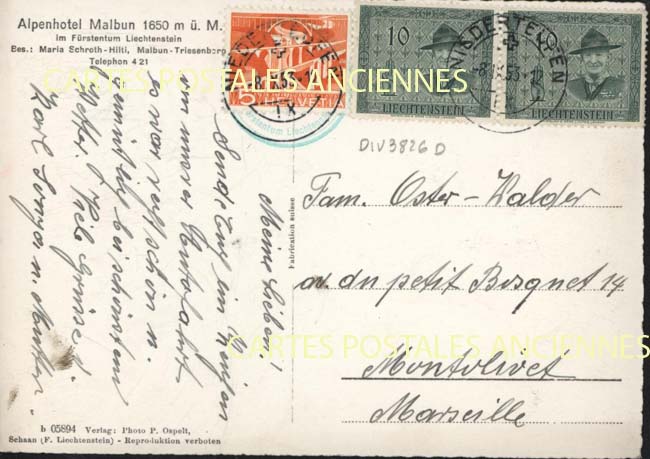 Alpenhotel Malbun 1650 m ü. M.
im Fürstentum Liechtenstein
Bes.: Maria Schroth-Hilti, Malbun-Triesenberg
Telephon 4 21
5
HELVETIA
10
LIECHTENSTEIN
LIECHTENSTEIN
NIEDERTEUFEN
Fürstentum Liechtenstein
CARTES POSTALES ANCIENNES
DIV3826 D
Meine Lieben!
Sende Euch ein
von unserer
war sehr schön u.
bei schönstem
Wetter. Viele Grüsse
Karl
Fabrication suisse
Fam. Oster-Walder
av. du petit Bosquet 14
CARTES POSTALES ANCIENNES
Montolivet
Marseille
b 05894 Verlag: Photo P. Ospelt,
Schaan (F. Liechtenstein) - Reproduktion verboten